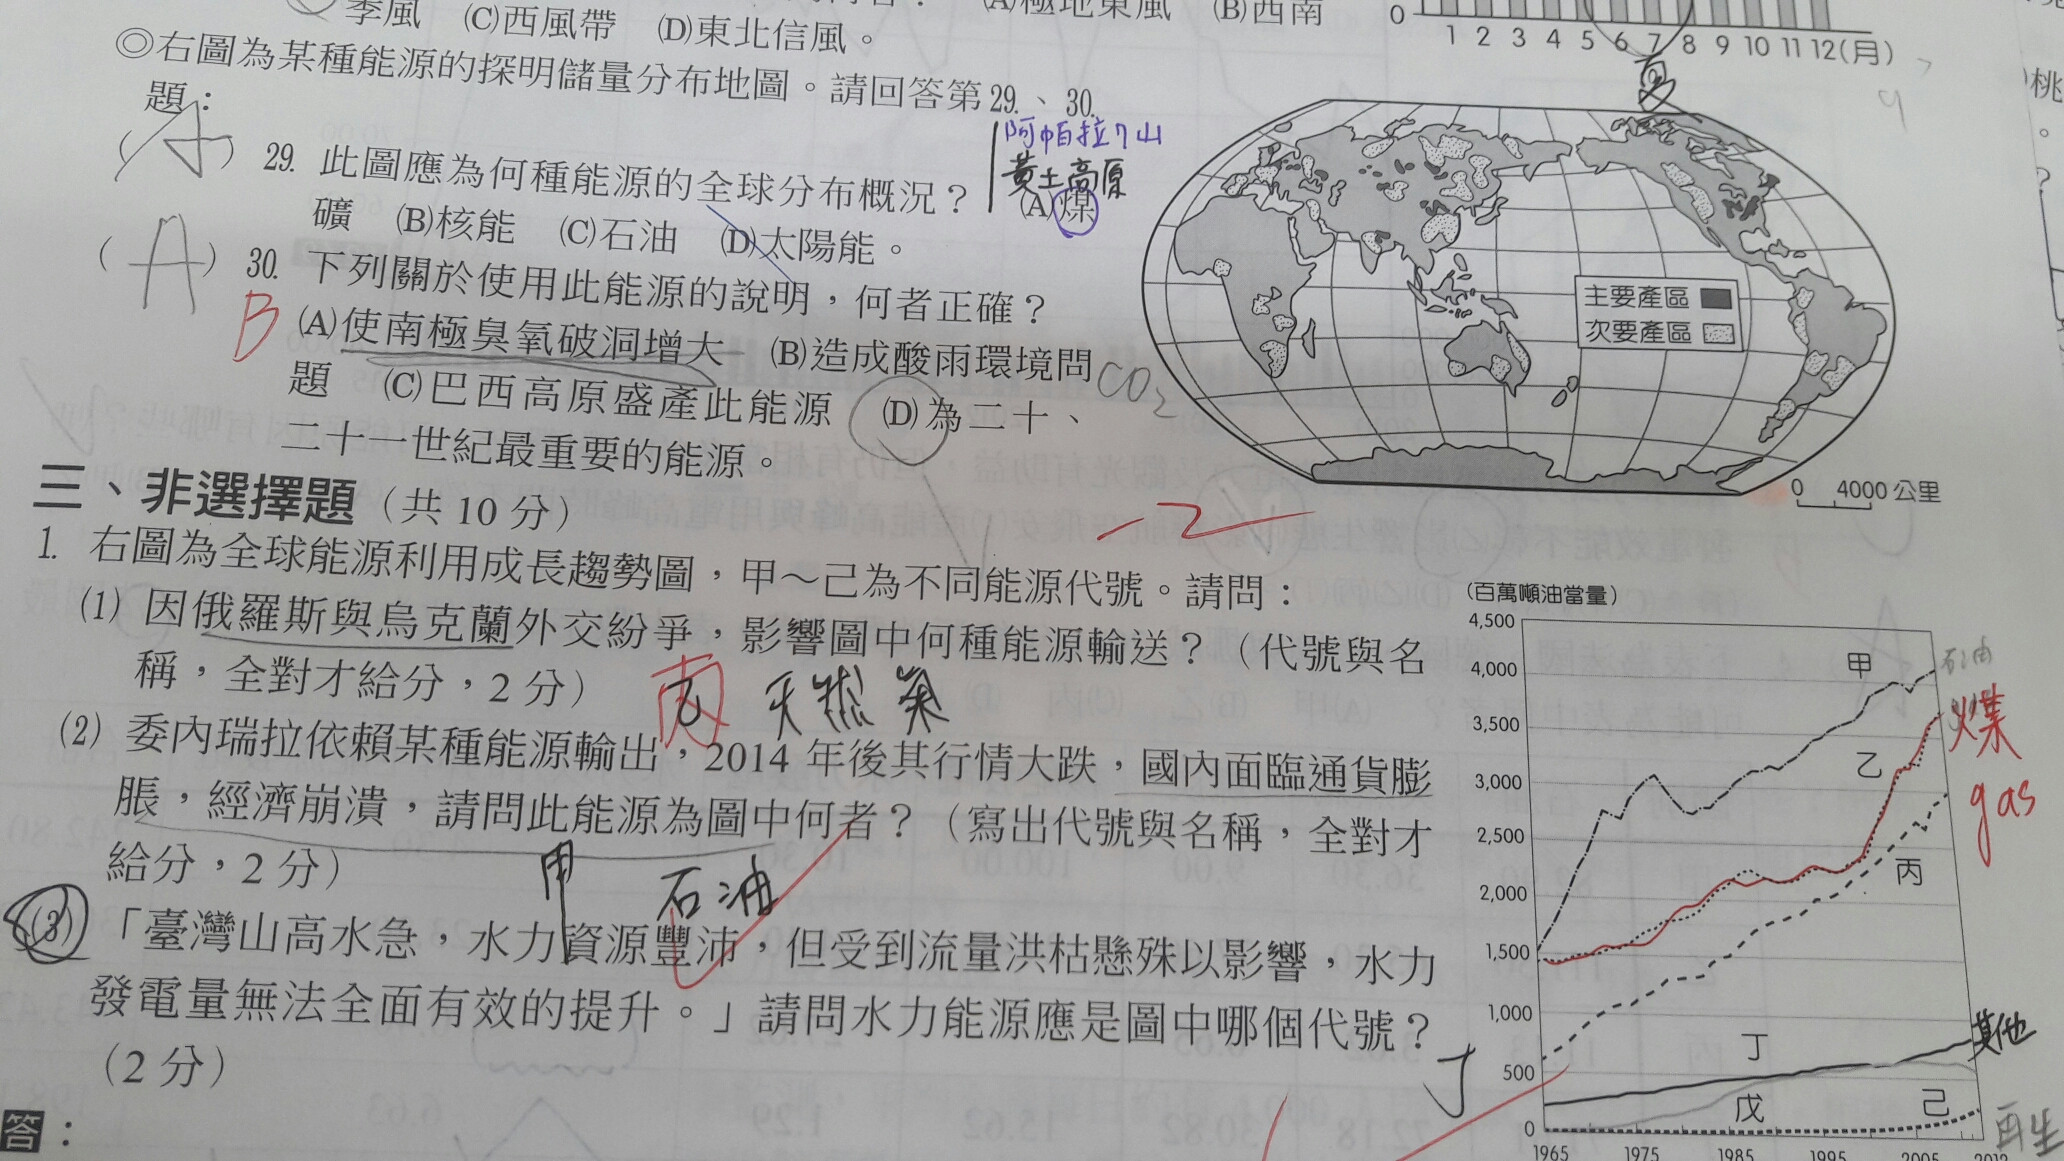 季風 (C)西風帶 (D)東北信風。
(A)極地東風 (B)西南
0
1 2 3 4 5 6 7 8 9 10 11 12(月)
夏
◎右圖為某種能源的探明儲量分布地圖。請回答第29.、30.
題：
阿帕拉契山
黃土高原
(A) 29. 此圖應為何種能源的全球分布概況？ (A)煤
礦 (B)核能 (C)石油 (D)太陽能。
(A) 30. 下列關於使用此能源的說明，何者正確？
B
(A)使南極臭氧破洞增大 (B)造成酸雨環境問
CO2
題 (C)巴西高原盛產此能源 (D)為二十、
二十一世紀最重要的能源。
主要產區
次要產區
0 4000公里
-2
三、非選擇題（共10分）
1. 右圖為全球能源利用成長趨勢圖，甲～己為不同能源代號。請問：
(1) 因俄羅斯與烏克蘭外交紛爭，影響圖中何種能源輸送？（代號與名
稱，全對才給分，2分）
丙 天然氣
(2) 委內瑞拉依賴某種能源輸出，2014年後其行情大跌，國內面臨通貨膨
脹，經濟崩潰，請問此能源為圖中何者？（寫出代號與名稱，全對才
給分，2分）
甲 石油
(3) 「臺灣山高水急，水力資源豐沛，但受到流量洪枯懸殊以影響，水力
發電量無法全面有效的提升。」請問水力能源應是圖中哪個代號？
（2分）
丁
答：
（百萬噸油當量）
4,500
4,000
3,500
3,000
2,500
2,000
1,500
1,000
500
0
甲
石油
乙
煤
gas
丙
丁
其他
戊
己
再生
1965 1975 1985 1995 2005 2012